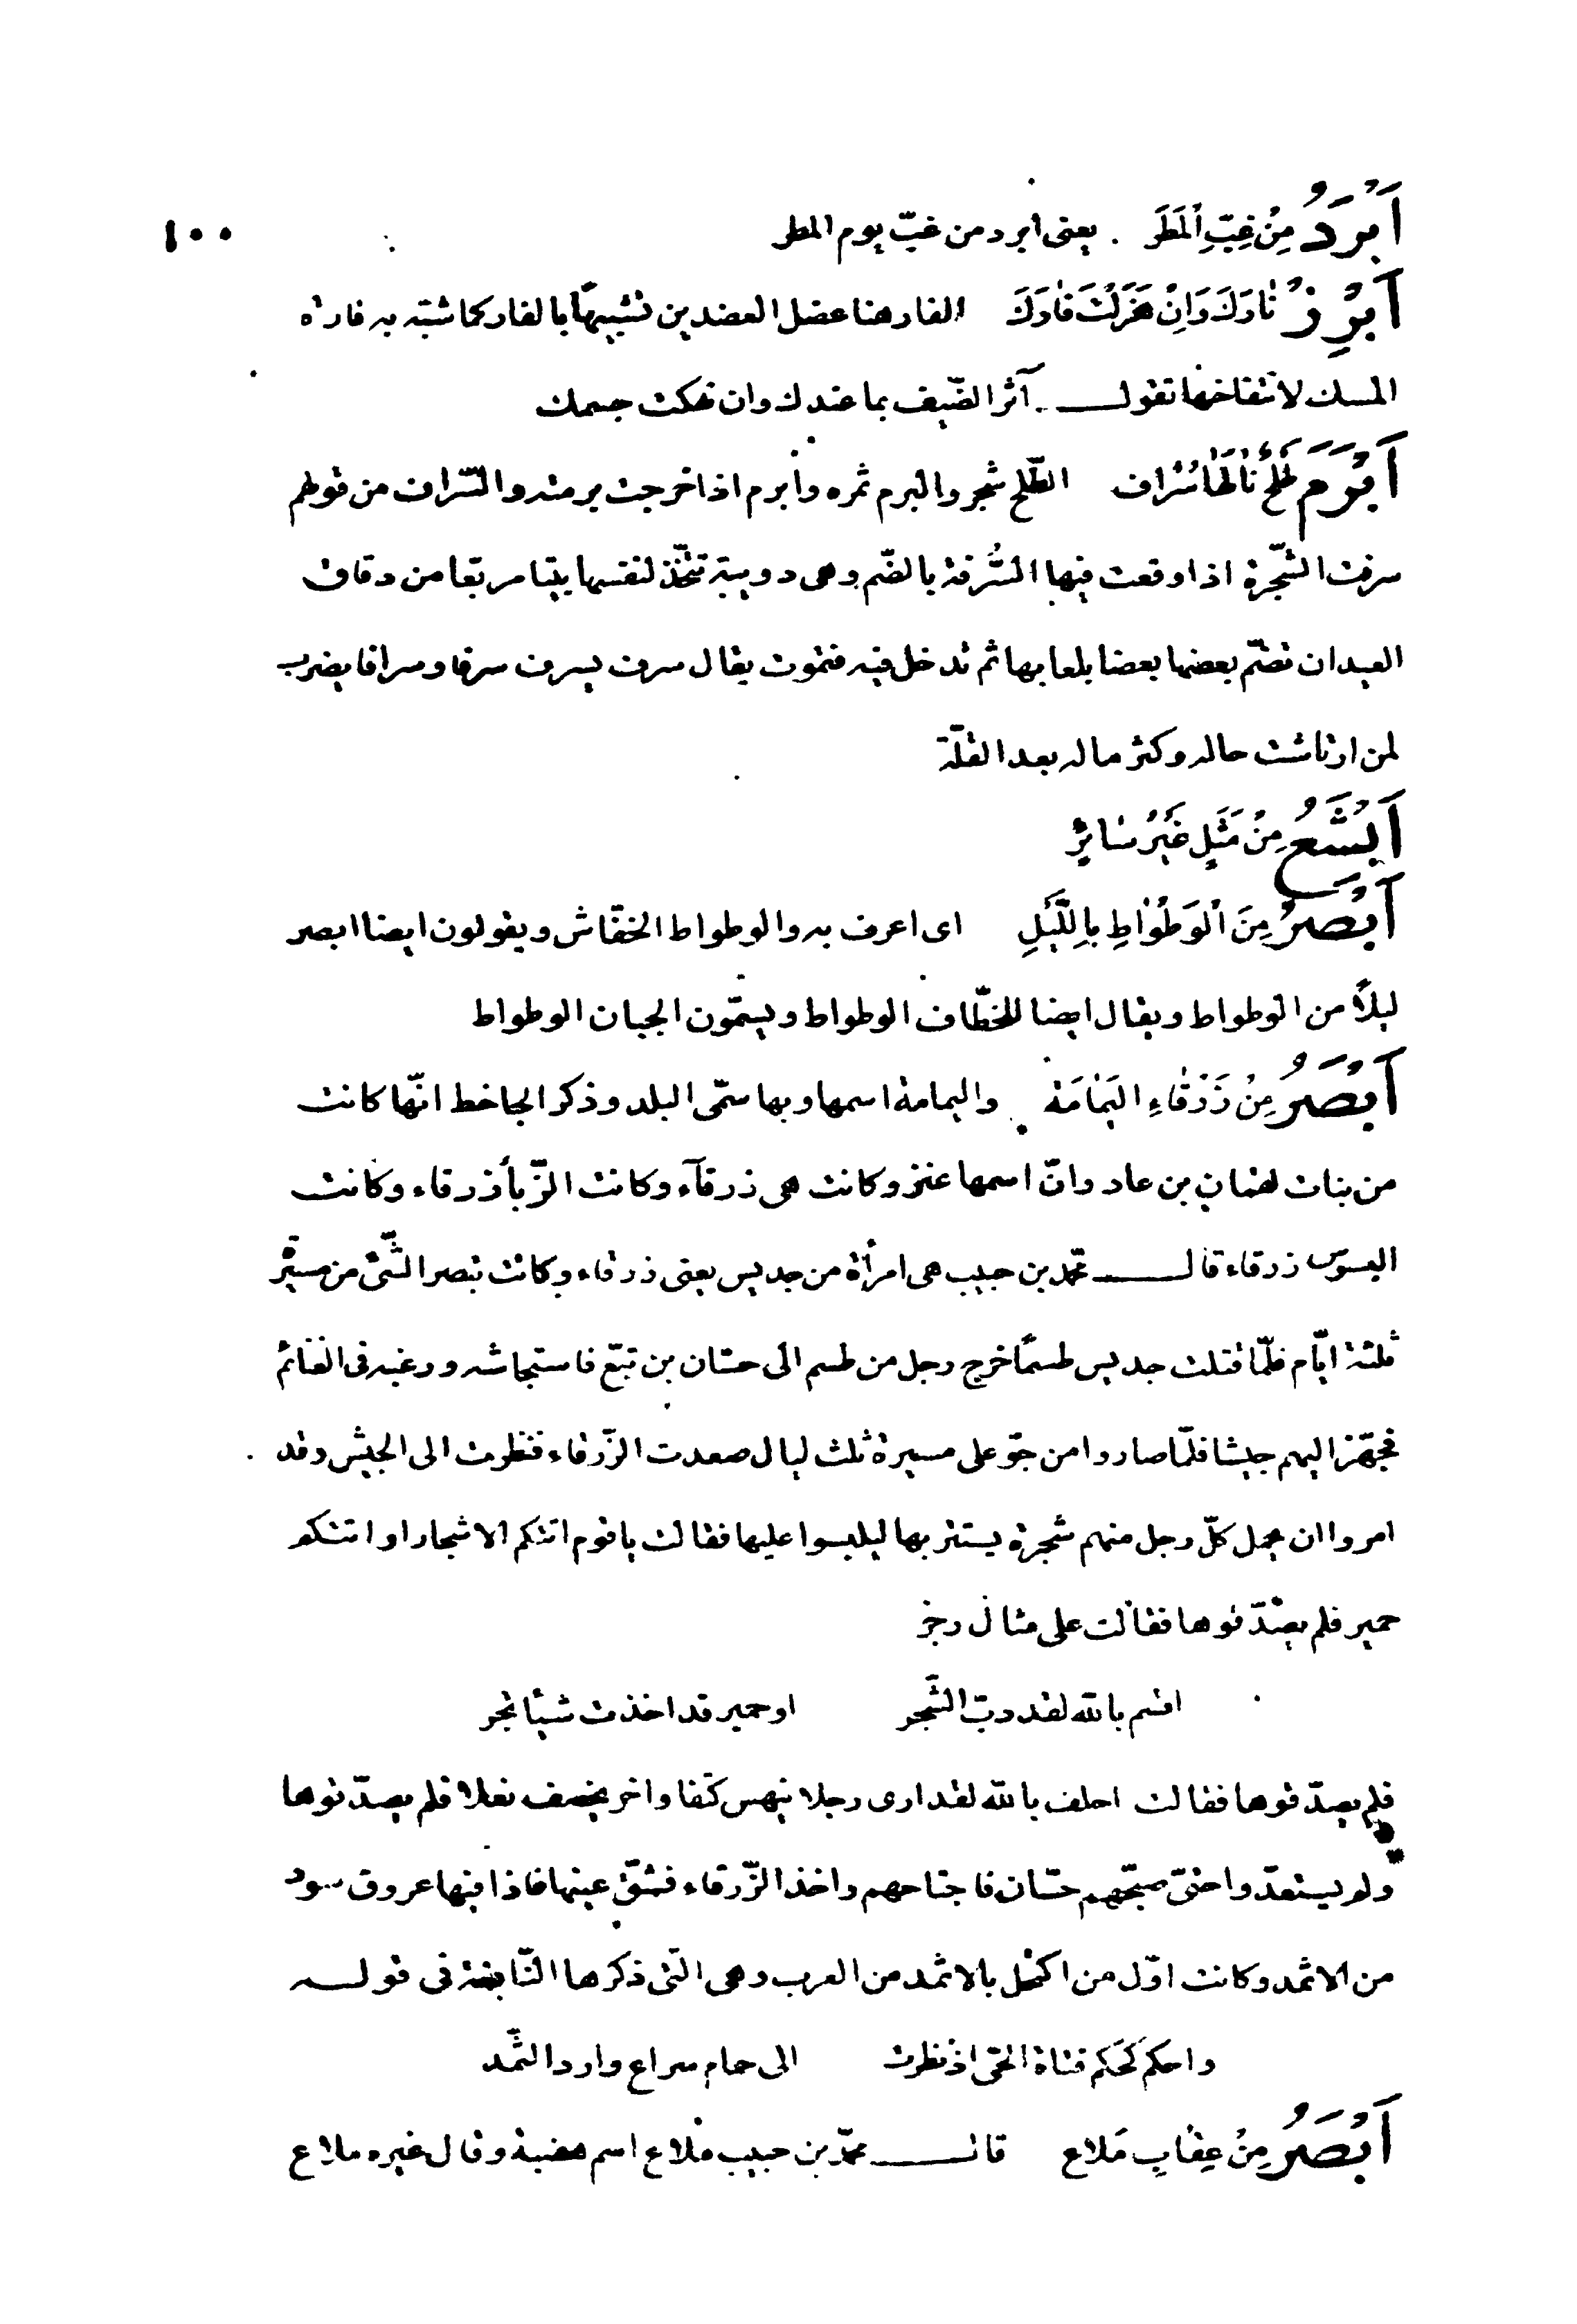 ١٠٠
اَبْرَدُ مِنْ غِبِّ الْمَطَرِ يعنى ابرد من غبّ يوم المطر
اَبْرِزْ نَارَكَ وَاِنْ هَزَلْتَ فَارَكَ الفار هنا عضل العضدين تشبيهًا بالفار كما شبّه به فارة
المسك لانتفاخها تقول آثر الضّيف بما عندك وان نهكت جسمك
اَبْرَمَ طَلْحٌ نَالَهَا سُرَاف الطّلح شجر والبرم ثمره وابرم اذا خرجت برمته والسّراف من قولهم
سرفت الشّجرة اذا وقعت فيها السُّرفة بالضّم وهى دويبة تتّخذ لنفسها بيتا مربّعا من دقاق
العيدان تضمّ بعضها بعضا بلعابها ثم تدخل فيه فتموت يقال سرف يسرف سرفا وسرافا يضرب
لمن ارتاشت حاله وكثر ماله بعد القلّة
اَبْشَعُ مِنْ مَثَلٍ غَيْرِ سَائِرٍ
اَبْصَرُ مِنَ الْوَطْوَاطِ بِاللَّيْلِ اى اعرف به والوطواط الخفّاش ويقولون ايضا ابصر
ليلاً من الوطواط ويقال ايضا للخطّاف الوطواط ويسمّون الجبان الوطواط
اَبْصَرُ مِنْ زَرْقَاءِ الْيَمَامَة واليمامة اسمها وبها سمّى البلد وذكر الجاحظ انّها كانت
من بنات لقمان بن عاد وانّ اسمها عنز وكانت هى زرقآء وكانت الزّبأ زرقاء وكانت
البسوس زرقاء قال محمّد بن حبيب هى امرأة من جديس يعنى زرقاء وكانت تبصر الشّئ من مسيرة
ثلثة ايّام فلمّا قتلت جديس طسمًا خرج رجل من طسم الى حسّان بن تبّع فاستجاشه ورغبه فى الغنائم
فجهّز اليهم جيشا فلمّا صاروا من جوّ على مسيرة ثلث ليال صعدت الزّرقاء فنظرت الى الجيش وقد
امروا ان يحمل كلّ رجل منهم شجرة يستتر بها ليلبسوا عليها فقالت ياقوم اتتكم الاشجار او اتتكم
حمير فلم يصدّقوها فقالت على مثال رجز
اقسم بالله لقد دبّ الشّجر او حمير قد اخذت شيئا نجر
فلم يصدّقوها فقالت احلف بالله لقد ارى رجلا ينهس كتفا واخر يخصف نعلا فلم يصدّقوها
ولم يستعدّوا حتىّ صبّحهم حسّان فاجتاحهم واخذ الزّرقاء فشقّ عينها فاذا فيها عروق سود
من الاثمد وكانت اوّل من اكتحل بالاثمد من العرب وهى الّتى ذكرها النّابغة فى قوله
واحكم كحكم فتاة الحىّ اذ نظرت الى حمام سراع وارد الثّمد
اَبْصَرُ مِنْ عِقَابِ مَلاع قال محمّد بن حبيب ملاع اسم هضبة وقال غيره ملاع